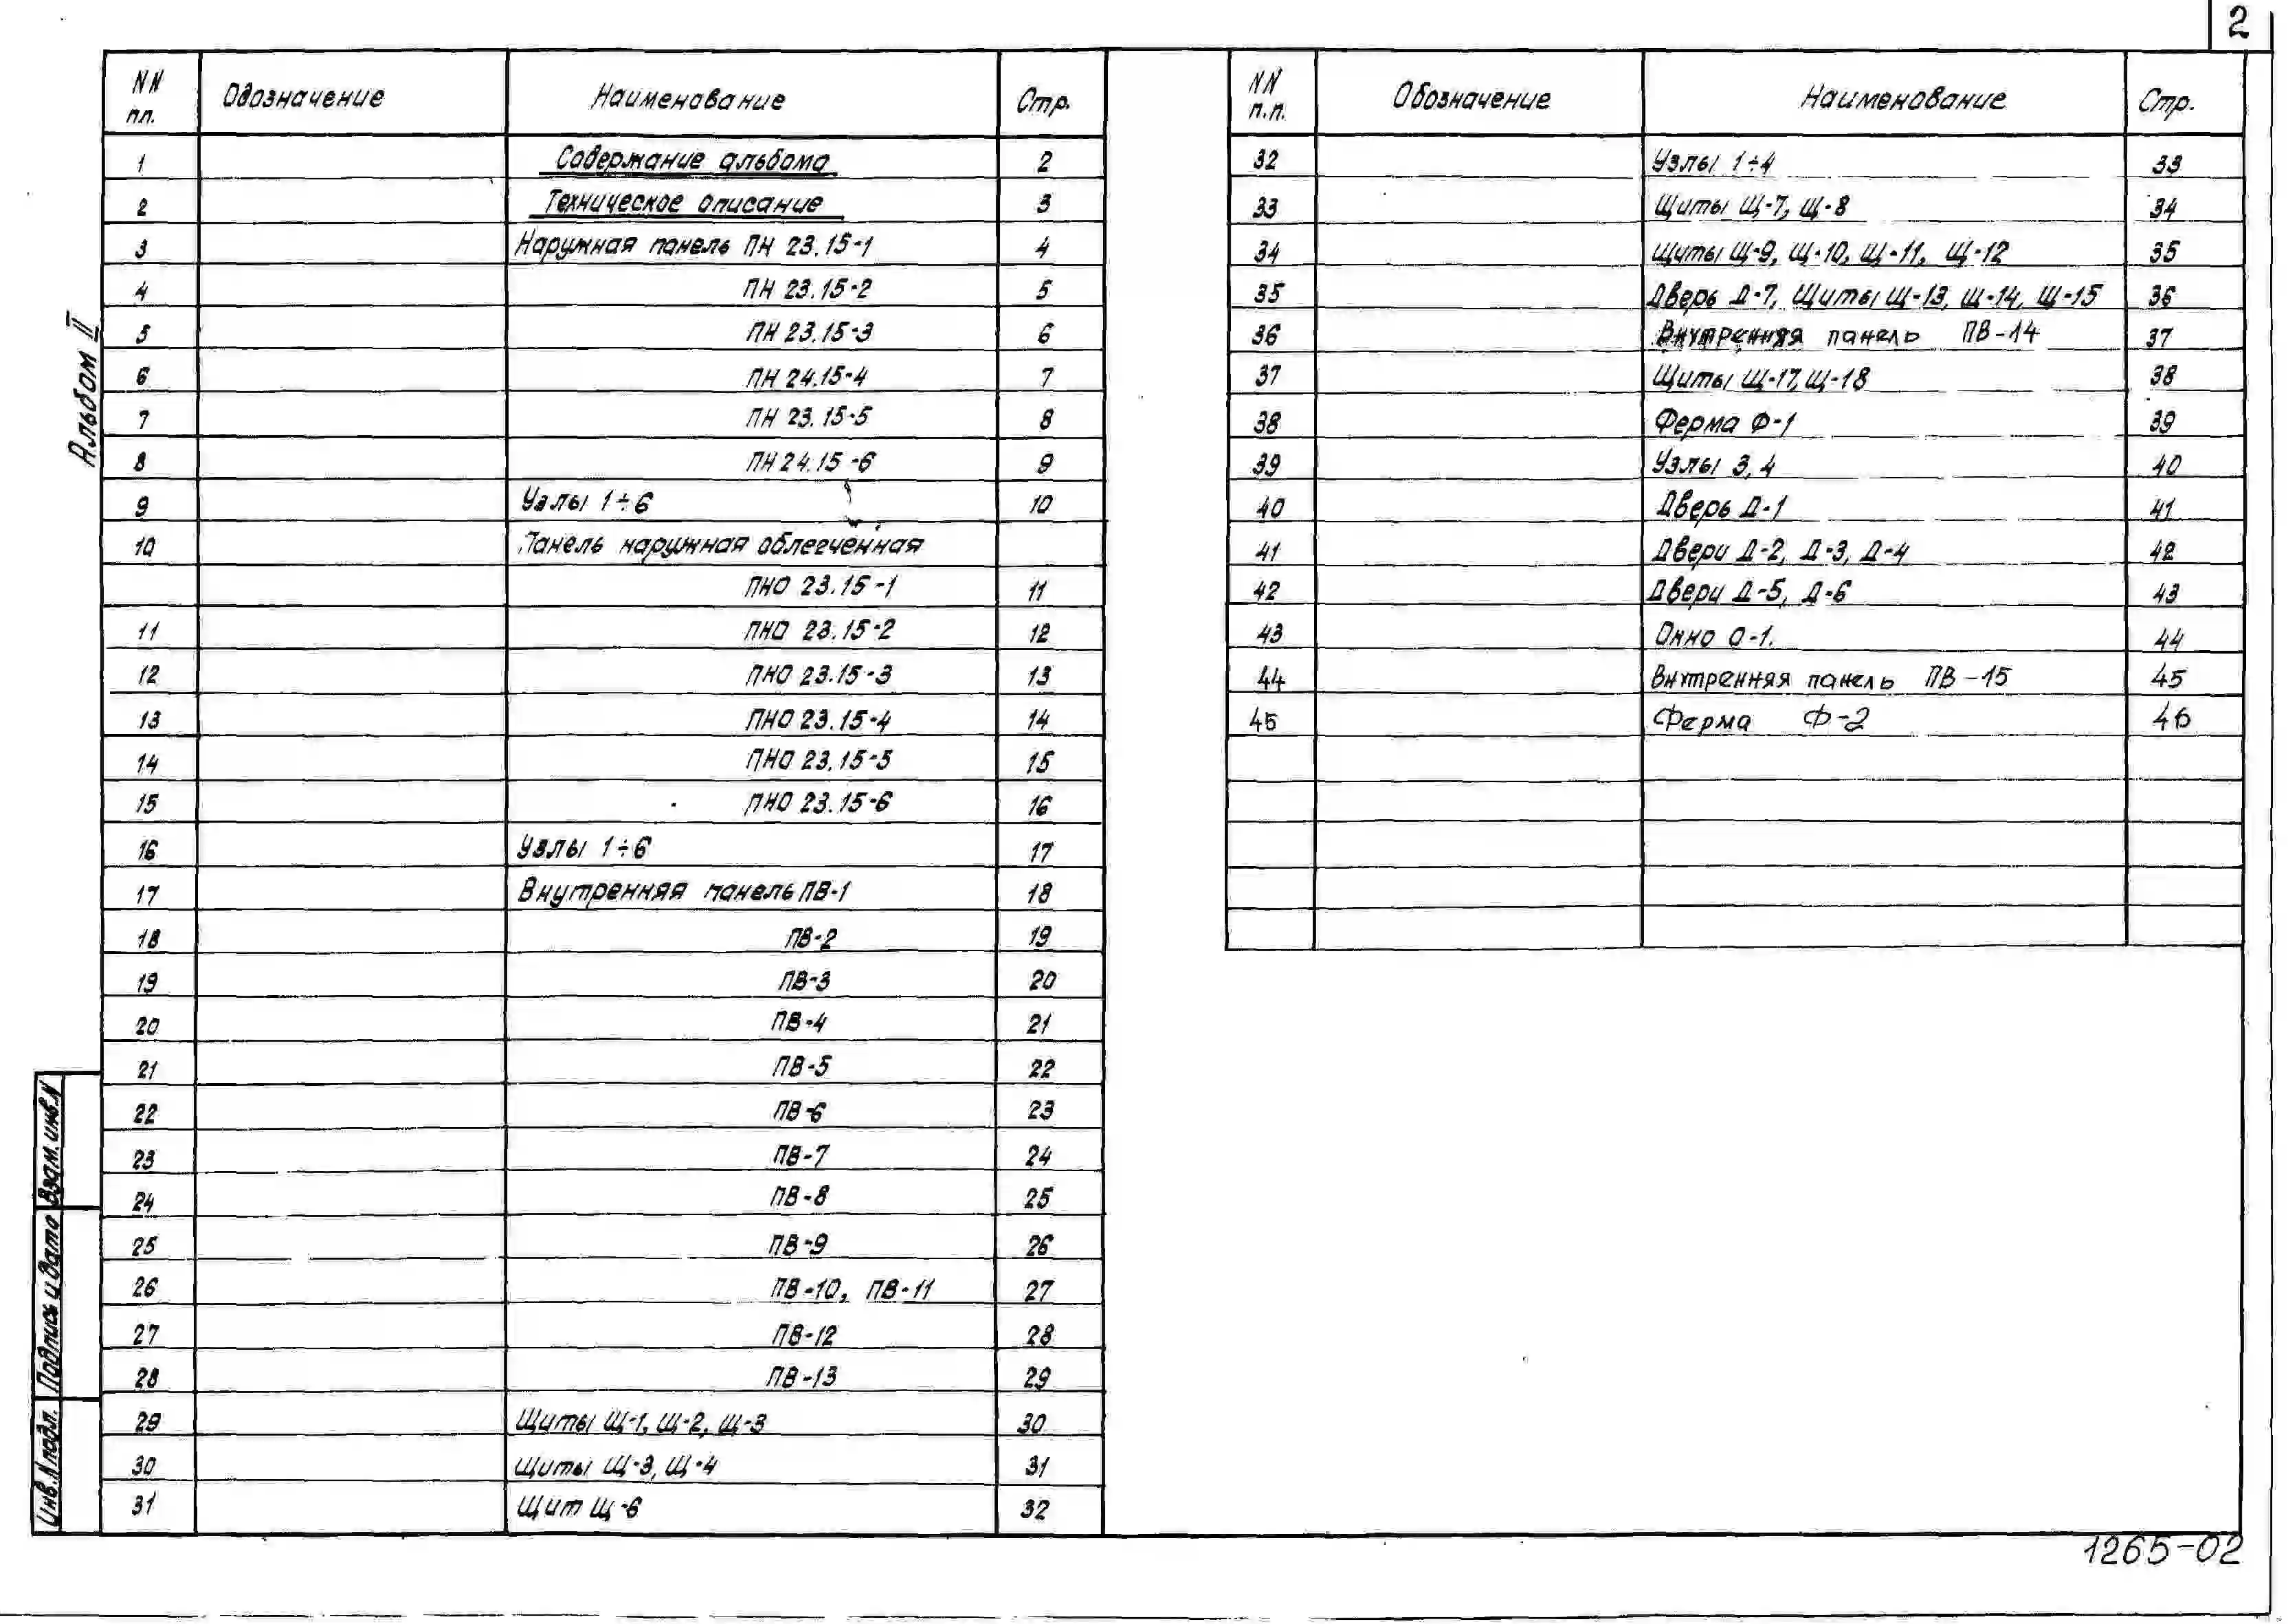 2
NN п.п. Обозначение Наименование Стр.
1 Содержание альбома 2
2 Техническое описание 3
3 Наружная панель ПН 23.15-1 4
4 ПН 23.15-2 5
5 ПН 23.15-3 6
6 ПН 24.15-4 7
7 ПН 23.15-5 8
8 ПН 24.15-6 9
9 Узлы 1÷6 10
10 Панель наружная облегченная
ПНО 23.15-1 11
11 ПНО 23.15-2 12
12 ПНО 23.15-3 13
13 ПНО 23.15-4 14
14 ПНО 23.15-5 15
15 ПНО 23.15-6 16
16 Узлы 1÷6 17
17 Внутренняя панель ПВ-1 18
18 ПВ-2 19
19 ПВ-3 20
20 ПВ-4 21
21 ПВ-5 22
22 ПВ-6 23
23 ПВ-7 24
24 ПВ-8 25
25 ПВ-9 26
26 ПВ-10, ПВ-11 27
27 ПВ-12 28
28 ПВ-13 29
29 Щиты Щ-1, Щ-2, Щ-3 30
30 Щиты Щ-3, Щ-4 31
31 Щит Щ-6 32
NN п.п. Обозначение Наименование Стр.
32 Узлы 1÷4 33
33 Щиты Щ-7, Щ-8 34
34 Щиты Щ-9, Щ-10, Щ-11, Щ-12 35
35 Дверь Д-7, Щиты Щ-13, Щ-14, Щ-15 36
36 Внутренняя панель ПВ-14 37
37 Щиты Щ-17, Щ-18 38
38 Ферма Ф-1 39
39 Узлы 3, 4 40
40 Дверь Д-1 41
41 Двери Д-2, Д-3, Д-4 42
42 Двери Д-5, Д-6 43
43 Окно О-1. 44
44 Внутренняя панель ПВ-15 45
45 Ферма Ф-2 46
Альбом II
Взам. инв. N
Подпись и дата
Инв. N подл.
1265-02